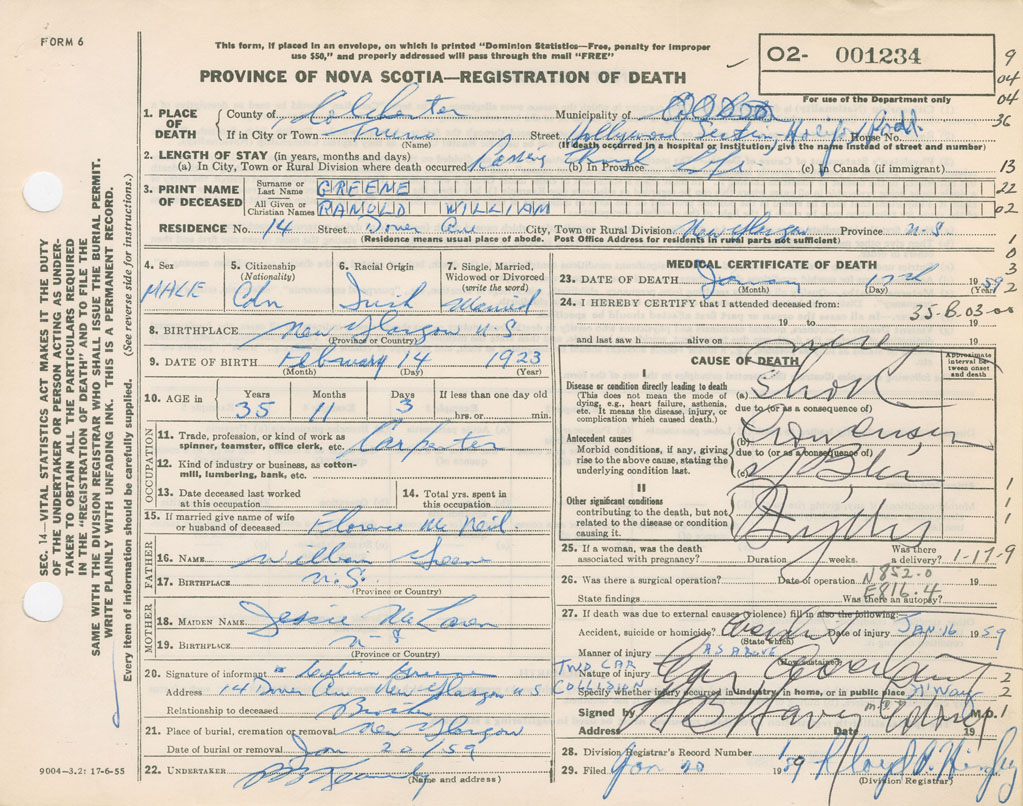 FORM 6
This form, if placed in an envelope, on which is printed "Dominion Statistics—Free, penalty for improper
use $50," and properly addressed will pass through the mail "FREE"
PROVINCE OF NOVA SCOTIA—REGISTRATION OF DEATH
O2- 001234
For use of the Department only
9
04
04
36
13
22
02
1
0
3
2
1. PLACE OF DEATH
County of Colchester Municipality of
If in City or Town Truro Street Hollywood Section, Halifax Road. House No.
(Name) (If death occurred in a hospital or institution, give the name instead of street and number)
2. LENGTH OF STAY (in years, months and days)
(a) In City, Town or Rural Division where death occurred Passing Through (b) In Province Life (c) In Canada (if immigrant)
3. PRINT NAME OF DECEASED
Surname or Last Name GREENE
All Given or Christian Names RANOLD WILLIAM
RESIDENCE No. 14 Street Dover Ave City, Town or Rural Division New Glasgow Province N-S
(Residence means usual place of abode. Post Office Address for residents in rural parts not sufficient)
4. Sex
MALE
5. Citizenship (Nationality)
Cdn
6. Racial Origin
Irish
7. Single, Married, Widowed or Divorced (write the word)
Married
8. BIRTHPLACE New Glasgow N-S
(Province or Country)
9. DATE OF BIRTH February 14 1923
(Month) (Day) (Year)
10. AGE in Years Months Days If less than one day old
35 11 3 hrs. or min.
OCCUPATION
11. Trade, profession, or kind of work as spinner, teamster, office clerk, etc. Carpenter
12. Kind of industry or business, as cotton-mill, lumbering, bank, etc.
13. Date deceased last worked at this occupation
14. Total yrs. spent in this occupation
15. If married give name of wife or husband of deceased Florence McNeil
FATHER
16. NAME William Greene
17. BIRTHPLACE N.S.
(Province or Country)
MOTHER
18. MAIDEN NAME Jessie McLaren
19. BIRTHPLACE N-S
(Province or Country)
20. Signature of informant Greene
Address 14 Dover Ave New Glasgow N S
Relationship to deceased Brother
21. Place of burial, cremation or removal New Glasgow
Date of burial or removal Jan 20/59
22. UNDERTAKER
(Name and address)
9004—3.2: 17-6-55
MEDICAL CERTIFICATE OF DEATH
23. DATE OF DEATH January 17th 1959
(Month) (Day) (Year)
24. I HEREBY CERTIFY that I attended deceased from:
35-B.03-00
19 to 19
and last saw h alive on 19
CAUSE OF DEATH
Approximate interval between onset and death
Disease or condition directly leading to death
(This does not mean the mode of dying, e.g., heart failure, asthenia, etc. It means the disease, injury, or complication which caused death.)
(a) Shock
due to (or as a consequence of)
Antecedent causes
Morbid conditions, if any, giving rise to the above cause, stating the underlying condition last.
(b)
due to (or as a consequence of)
(c)
II
Other significant conditions contributing to the death, but not related to the disease or condition causing it.
1
1
1
25. If a woman, was the death associated with pregnancy? Duration weeks. Was there a delivery? 1-17-9
26. Was there a surgical operation? Date of operation 19
N852.0
E816.4
State findings Was there an autopsy?
27. If death was due to external causes (violence) fill in also the following:
Accident, suicide or homicide? Date of injury JAN 16 1959
(State which)
Manner of injury AS ABOVE
(How sustained)
Nature of injury
TWO CAR COLLISION
Specify whether injury occurred in industry, in home, or in public place H'WAY
2
2
1
Signed by M.D.
Address Date 19
28. Division Registrar's Record Number
29. Filed Jan 20 1959
(Division Registrar)
SEC. 14 VITAL STATISTICS ACT MAKES IT THE DUTY
OF THE UNDERTAKER OR PERSON ACTING AS UNDER-
TAKER TO OBTAIN ALL THE PARTICULARS REQUIRED
IN THE "REGISTRATION OF DEATH" AND TO FILE THE
SAME WITH THE DIVISION REGISTRAR WHO SHALL ISSUE THE BURIAL PERMIT.
WRITE PLAINLY WITH UNFADING INK. THIS IS A PERMANENT RECORD.
Every item of information should be carefully supplied. (See reverse side for instructions.)